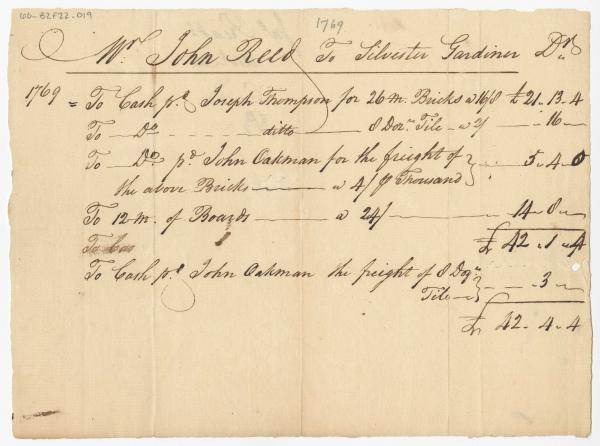 60-B2F22-019
1769
Mr. John Reed To Silvester Gardiner Dr
1769 = To Cash pd. Joseph Thompson for 26 m. Bricks a 16/8 £ 21 .. 13 .. 4
To — Do — ditto — 8 Dozn. Tile — a 2/ — .. 16 —
To — Do. pd. John Oakman for the freight of } .. 5 .. 4 .. 0
the above Bricks — a 4/ ℔ Thousand
To 12 m. of Boards — a 24/ — 14 .. 8 ..
To Cas £ 42 .. 1 .. 4
To Cash pd. John Oakman the freight of 8 Dozn. } — 3 —
Tile
£ 42 .. 4 .. 4